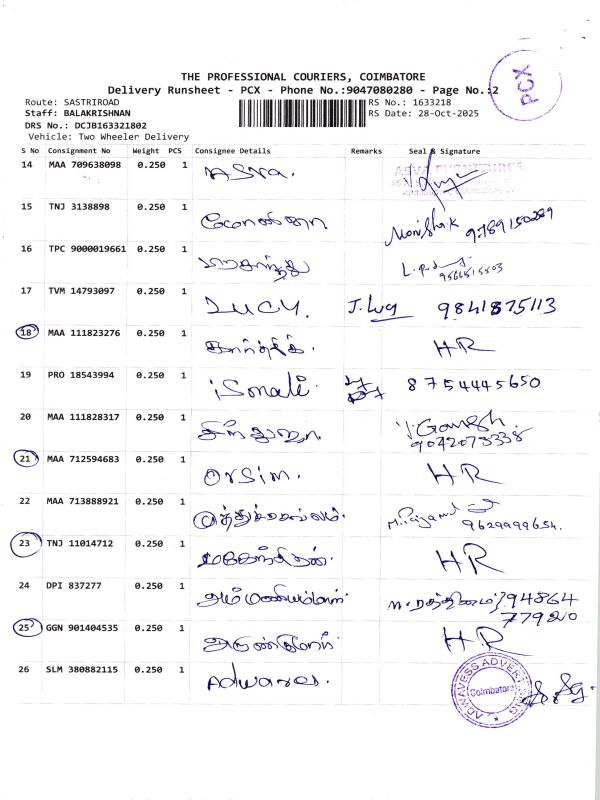 PCX
THE PROFESSIONAL COURIERS, COIMBATORE
Delivery Runsheet - PCX - Phone No.:9047080280 - Page No.:2
Route: SASTRIROAD
RS No.: 1633218
Staff: BALAKRISHNAN
RS Date: 28-Oct-2025
DRS No.: DCJB163321802
Vehicle: Two Wheeler Delivery
S No Consignment No Weight PCS Consignee Details Remarks Seal & Signature
14 MAA 709638098 0.250 1 Asva.
15 TNJ 3138898 0.250 1 9789150289
16 TPC 9000019661 0.250 1
17 TVM 14793097 0.250 1 LUCY. J. Lucy 9841875113
18 MAA 111823276 0.250 1 HR
19 PRO 18543994 0.250 1 iSmate. 8754445650
20 MAA 111828317 0.250 1 சிந்துஜா. V. Ganesh
9042073338
21 MAA 712594683 0.250 1 Orsim. HR
22 MAA 713888921 0.250 1 முத்துச்செல்வம். 9629999654.
23 TNJ 11014712 0.250 1 மகேந்திரன். HR
24 DPI 837277 0.250 1 அம்மணியம்மாள். 94864
77920
25 GGN 901404535 0.250 1 HR
26 SLM 380882115 0.250 1 Adwaves.
ADWAVESS ADVERTISING
Coimbatore